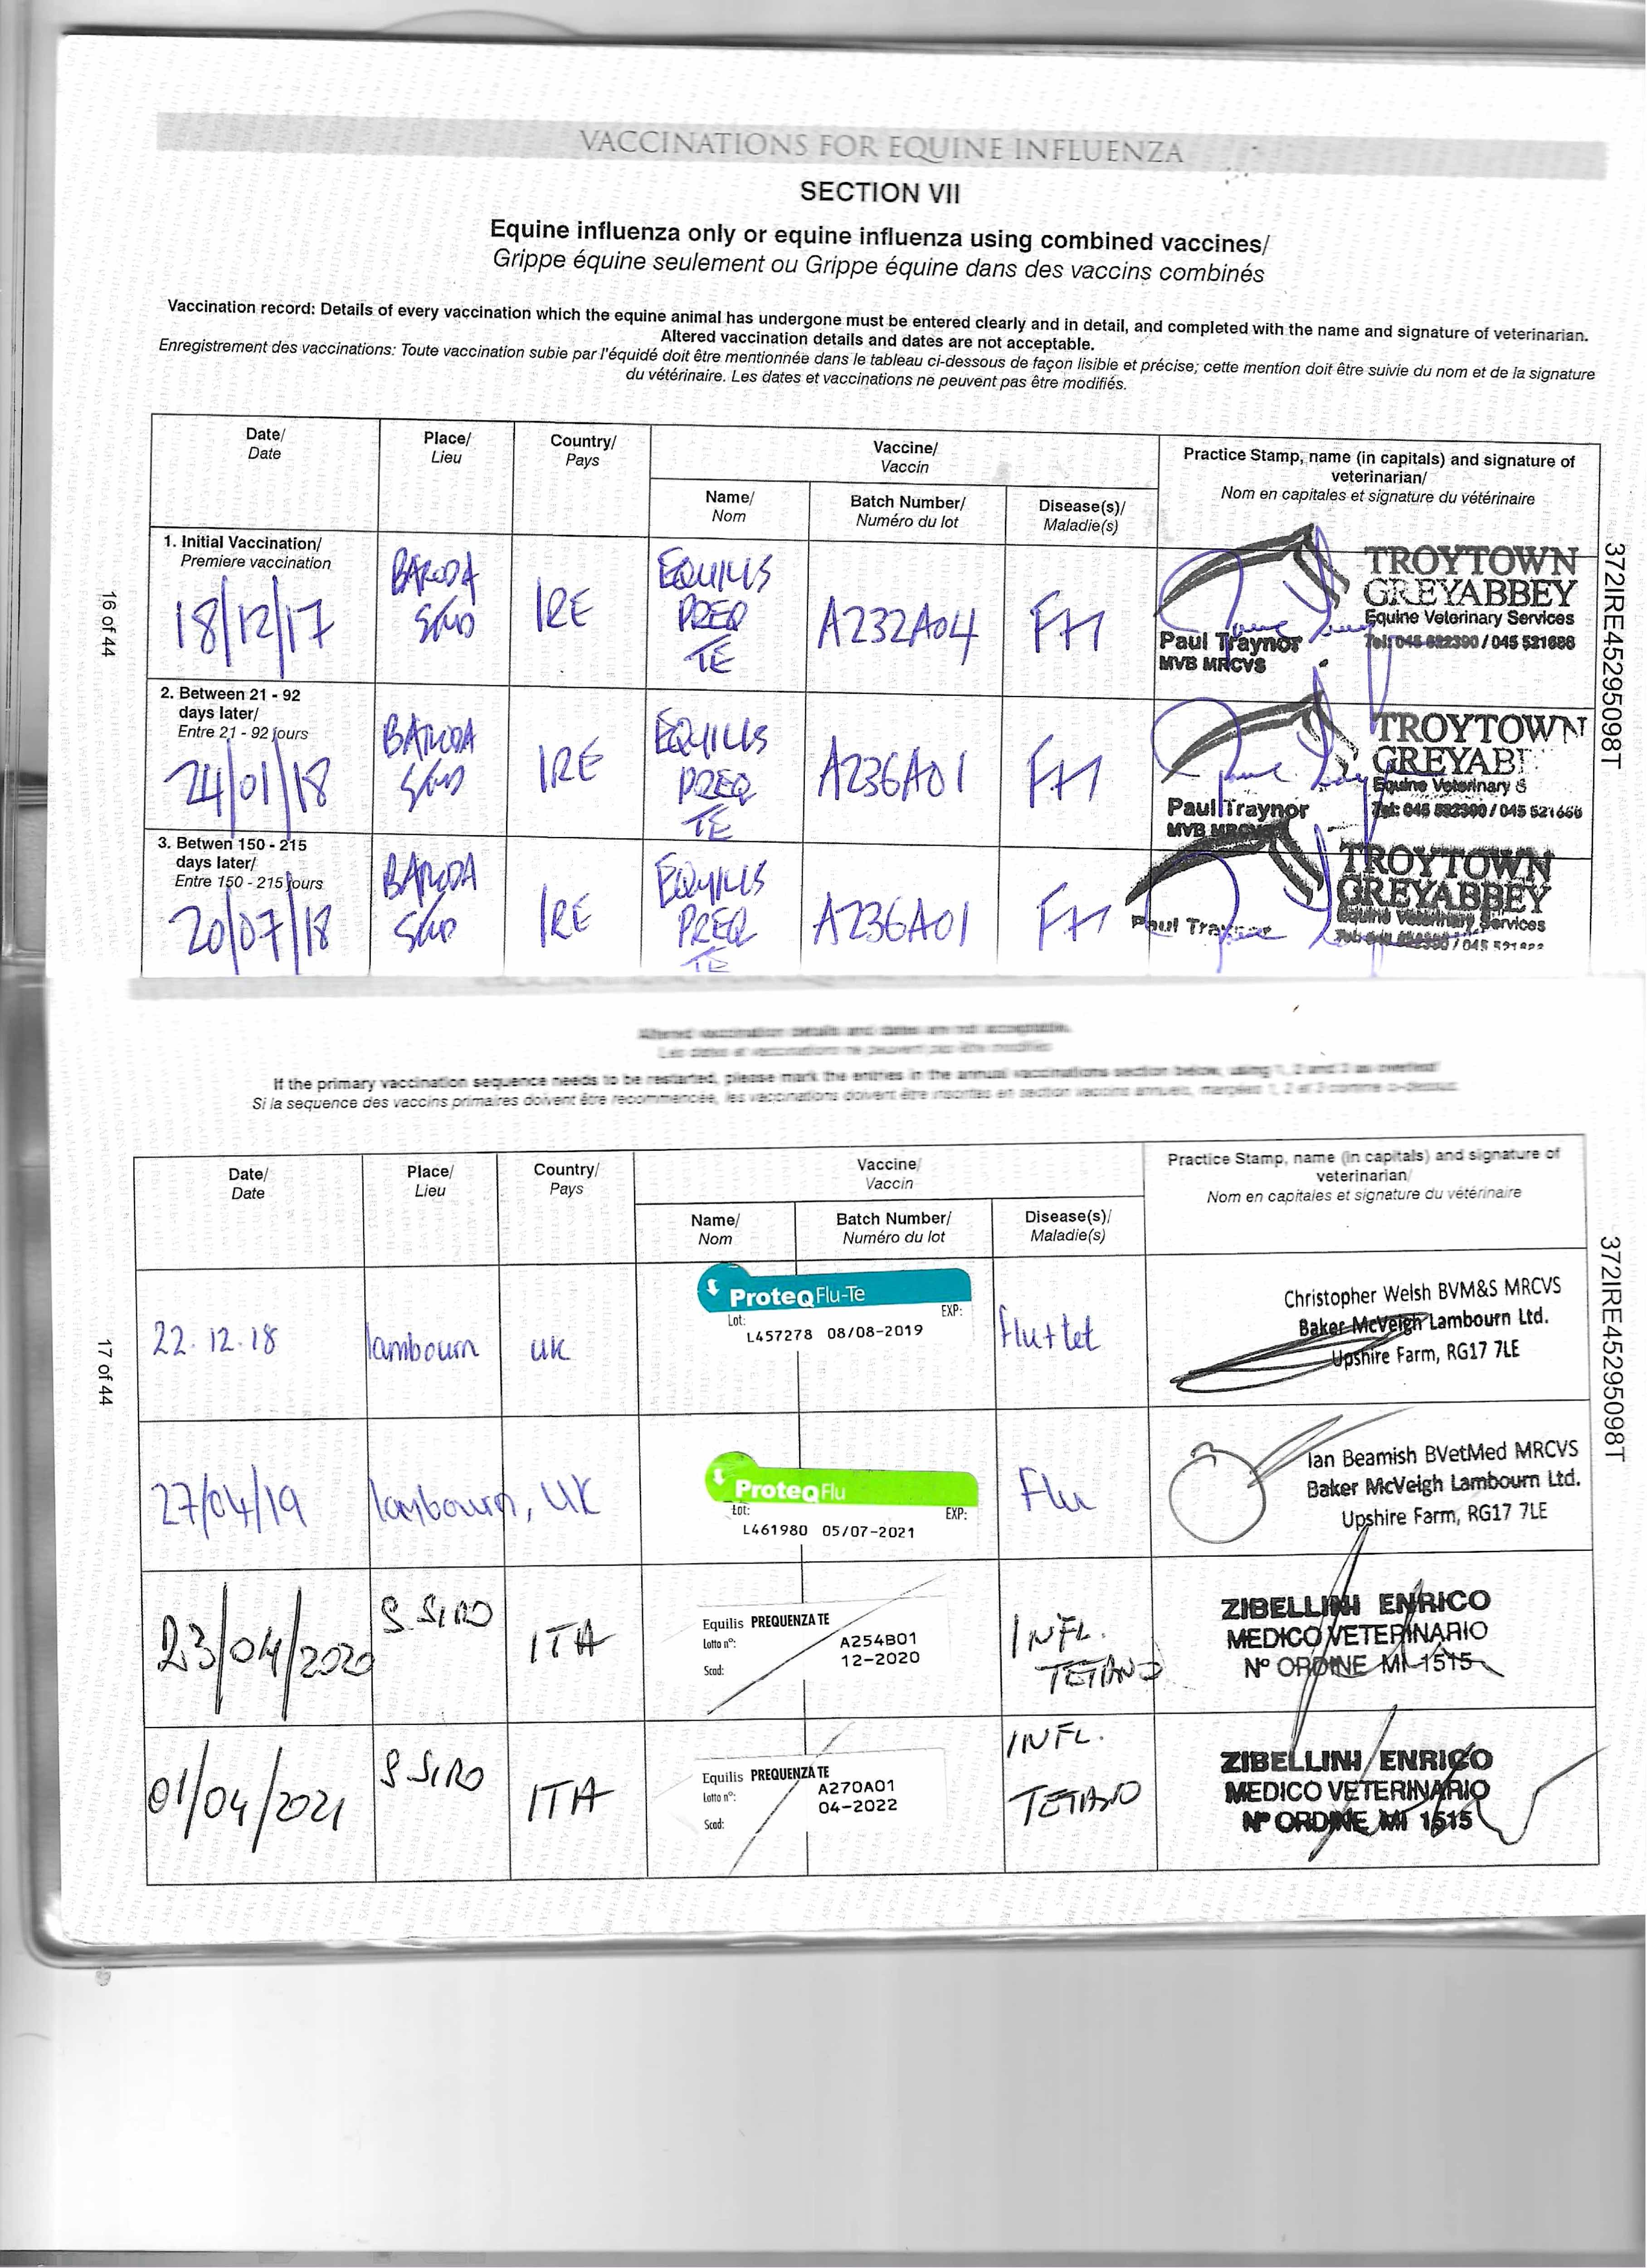 VACCINATIONS FOR EQUINE INFLUENZA
SECTION VII
Equine influenza only or equine influenza using combined vaccines/
Grippe équine seulement ou Grippe équine dans des vaccins combinés
Vaccination record: Details of every vaccination which the equine animal has undergone must be entered clearly and in detail, and completed with the name and signature of veterinarian.
Altered vaccination details and dates are not acceptable.
Enregistrement des vaccinations: Toute vaccination subie par l'équidé doit être mentionnée dans le tableau ci-dessous de façon lisible et précise; cette mention doit être suivie du nom et de la signature
du vétérinaire. Les dates et vaccinations ne peuvent pas être modifiés.
Date/
Date
Place/
Lieu
Country/
Pays
Vaccine/
Vaccin
Name/
Nom
Batch Number/
Numéro du lot
Disease(s)/
Maladie(s)
Practice Stamp, name (in capitals) and signature of
veterinarian/
Nom en capitales et signature du vétérinaire
1. Initial Vaccination/
Premiere vaccination
18/12/17
BARODA
STUD
IRE
EQUILIS
PREQ
TE
A232A04
F+T
TROYTOWN
GREYABBEY
Equine Veterinary Services
Paul Traynor
MVB MRCVS
2. Between 21 - 92
days later/
Entre 21 - 92 jours
24/01/18
BARODA
STUD
IRE
EQUILIS
PREQ
TE
A236A01
F+T
TROYTOWN
GREYAB
Equine Veterinary S
Paul Traynor
MVB MRCVS
3. Betwen 150 - 215
days later/
Entre 150 - 215 jours
20/07/18
BARODA
STUD
IRE
EQUILIS
PREQ
TE
A236A01
F+T
TROYTOWN
GREYABBEY
Equine Veterinary Services
Paul Traynor
16 of 44
372IRE45295098T
Altered vaccination details and dates are not acceptable.
Les dates et vaccinations ne peuvent pas être modifiés
If the primary vaccination sequence needs to be restarted, please mark the entries in the annual vaccinations section below, using 1, 2 and 3 as overleaf
Si la sequence des vaccins primaires doivent être recommencée, les vaccinations doivent être inscrites en section vaccins annuels, margées 1, 2 et 3 comme ci-dessus.
Date/
Date
Place/
Lieu
Country/
Pays
Vaccine/
Vaccin
Name/
Nom
Batch Number/
Numéro du lot
Disease(s)/
Maladie(s)
Practice Stamp, name (in capitals) and signature of
veterinarian/
Nom en capitales et signature du vétérinaire
22.12.18
lambourn
UK
ProteqFlu-Te
Lot:
EXP:
L457278 08/08-2019
flu+tet
Christopher Welsh BVM&S MRCVS
Baker McVeigh Lambourn Ltd.
Upshire Farm, RG17 7LE
27/04/19
lambourn, UK
ProteqFlu
Lot:
EXP:
L461980 05/07-2021
Flu
Ian Beamish BVetMed MRCVS
Baker McVeigh Lambourn Ltd.
Upshire Farm, RG17 7LE
23/04/2020
S. SIRO
ITA
Equilis PREQUENZA TE
Lotto n°:
A254B01
12-2020
Scad:
INFL.
TETANO
ZIBELLINI ENRICO
MEDICO VETERINARIO
N° ORDINE MI 1515
01/04/2021
S. SIRO
ITA
Equilis PREQUENZA TE
Lotto n°:
A270A01
04-2022
Scad:
INFL.
TETANO
ZIBELLINI ENRICO
MEDICO VETERINARIO
N° ORDINE MI 1515
17 of 44
372IRE45295098T